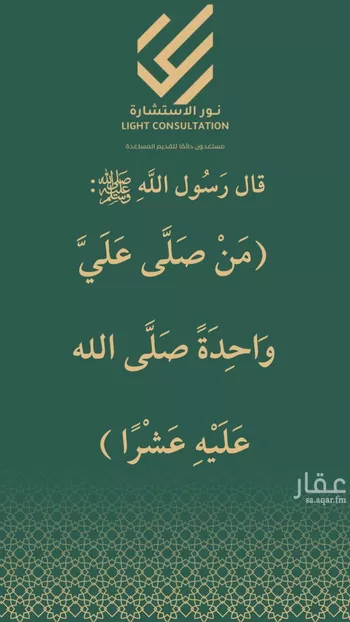 نور الاستشارة
LIGHT CONSULTATION
مستعدون دائمًا لتقديم المساعدة
قال رَسُول اللَّهِ ﷺ:
(مَنْ صَلَّى عَلَيَّ
وَاحِدَةً صَلَّى الله
عَلَيْهِ عَشْرًا )
عقار
sa.aqar.fm